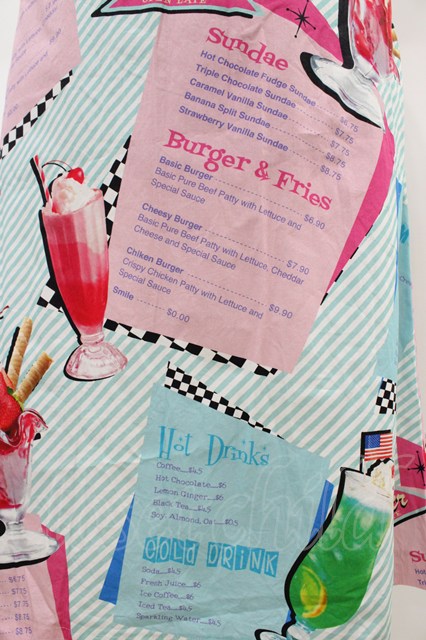 OPEN LATE
Sundae
Hot Chocolate Fudge Sundae $6.75
Triple Chocolate Sundae $7.75
Caramel Vanilla Sundae $7.75
Banana Split Sundae $8.75
Strawberry Vanilla Sundae $8.75
Burger & Fries
Basic Burger $6.90
Basic Pure Beef Patty with Lettuce and
Special Sauce
Cheesy Burger $7.90
Basic Pure Beef Patty with Lettuce, Cheddar
Cheese and Special Sauce
Chiken Burger $9.90
Crispy Chicken Patty with Lettuce and
Special Sauce
Smile $0.00
Hot Drinks
Coffee__$4.5
Hot Chocolate__$6
Lemon Ginger__$6
Black Tea__$4.5
Soy, Almond, Oat__$0.5
COLD DRINK
Soda__$4.5
Fresh Juice__$6
Ice Coffee__$6
Iced Tea__$4.5
Sparkling Water__$4.5
$6.75
$7.75
$7.75
$8.75
$8.75
Su